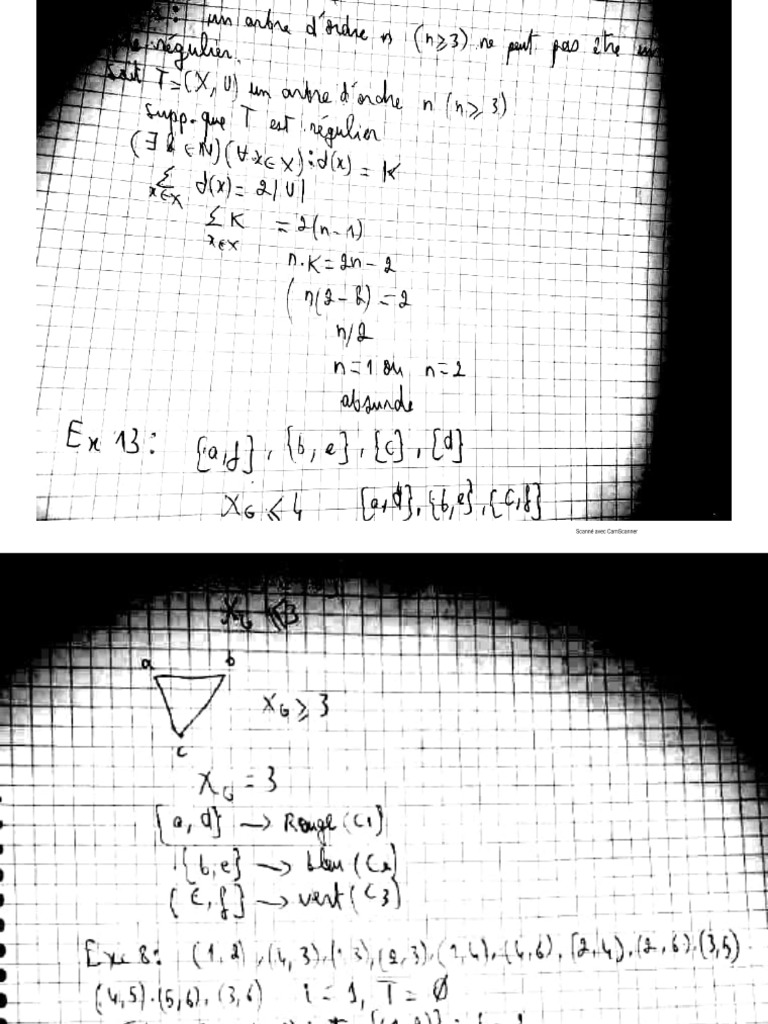 un arbre d'ordre n (n≥3) ne peut pas être un
régulier.
Soit T=(X,U) un arbre d'ordre n (n≥3)
Supp-que T est régulier
(∃ k ∈ N)(∀x∈X): d(x) = K
∑ d(x) = 2|U|
x∈X
∑ K = 2(n-1)
x∈X
n.K = 2n-2
( n(2-k) = 2
n/2
n=1 ou n=2
absurde
Ex 13: {a,f}, {b,e}, {c}, {d}
X_G ≤ 4 {a,d}, {b,e}, {c,f}
Scanné avec CamScanner
X_G ≤ 3
a b
X_G ≥ 3
c
X_G = 3
{a,d} → Rouge (C1)
{b,e} → bleu (C2)
{c,f} → vert (C3)
Exe 8: (1,2), (4,3), (1,3), (2,3), (1,4), (4,6), (2,4), (2,6), (3,5)
(4,5), (5,6), (3,6) i = 1, T = ∅